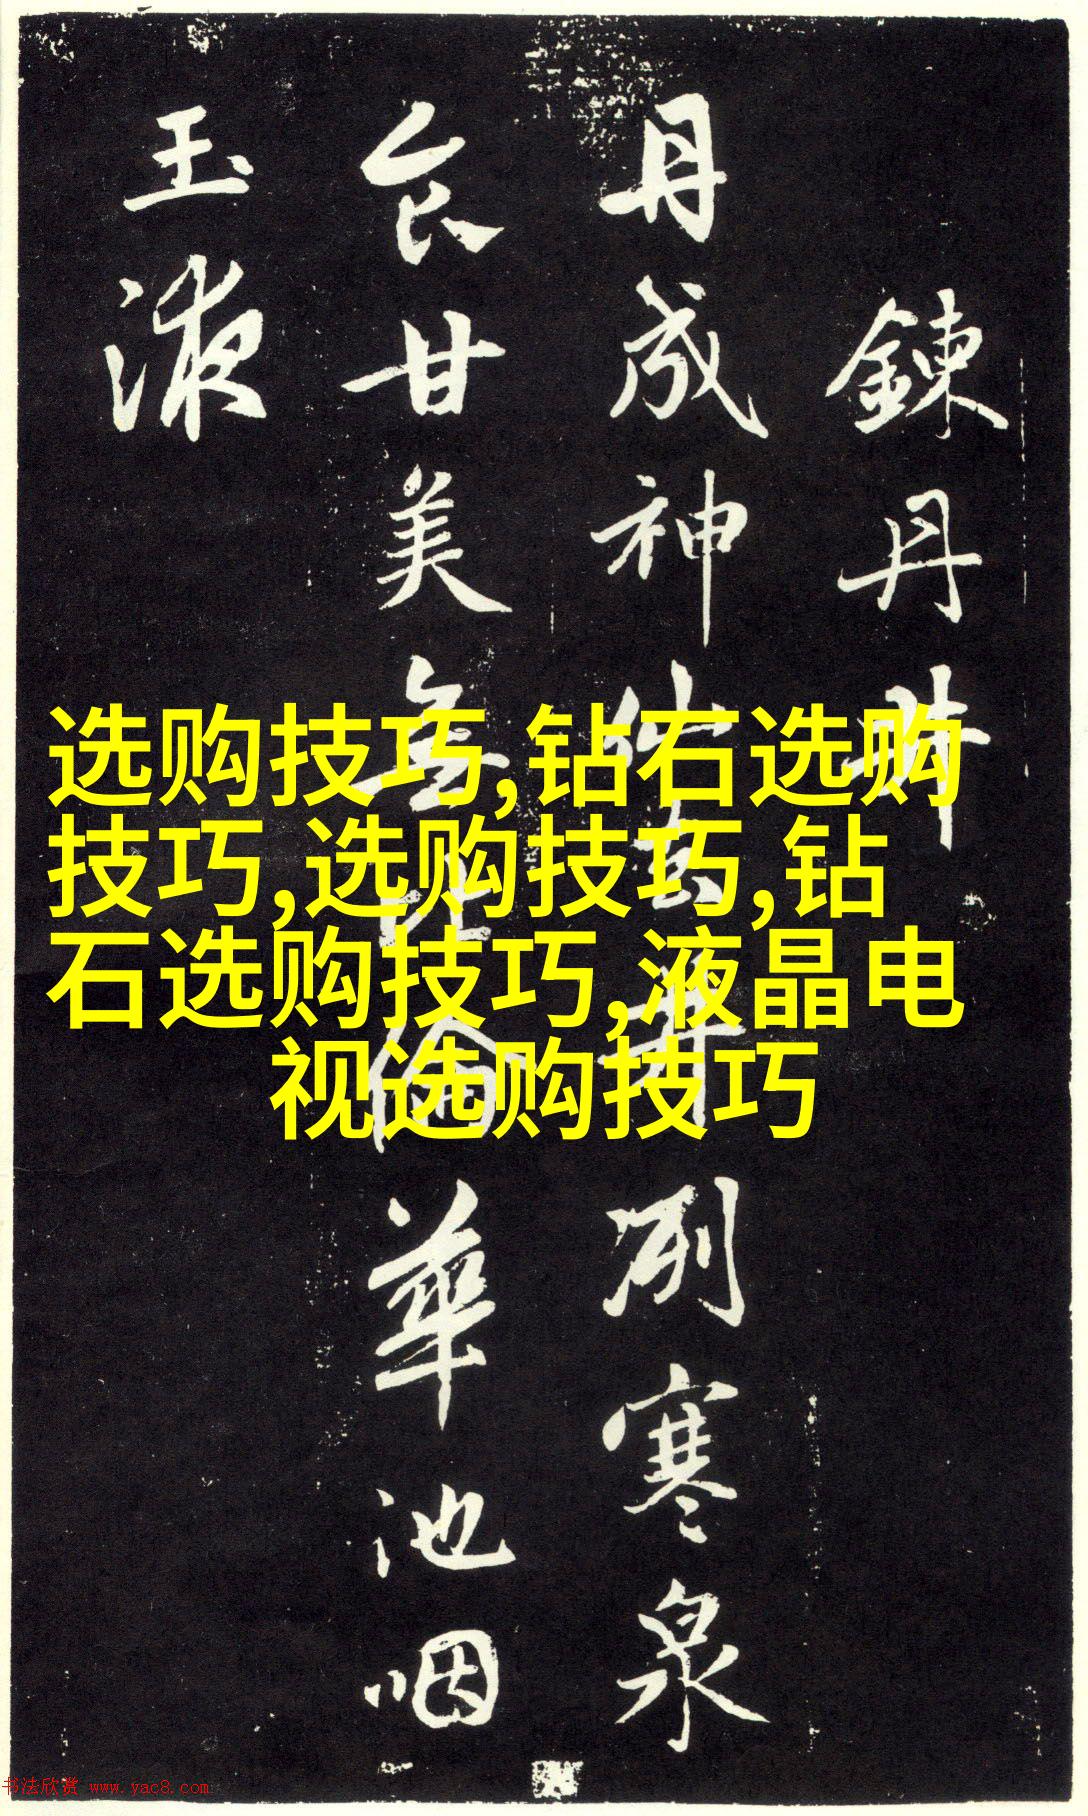 鍊丹井
丹成神仙去井冽寒泉
食甘美無比倫華池咽
玉液
选购技巧,钻石选购
技巧,选购技巧,钻
石选购技巧,液晶电
视选购技巧
书法欣赏 www.yac8.com